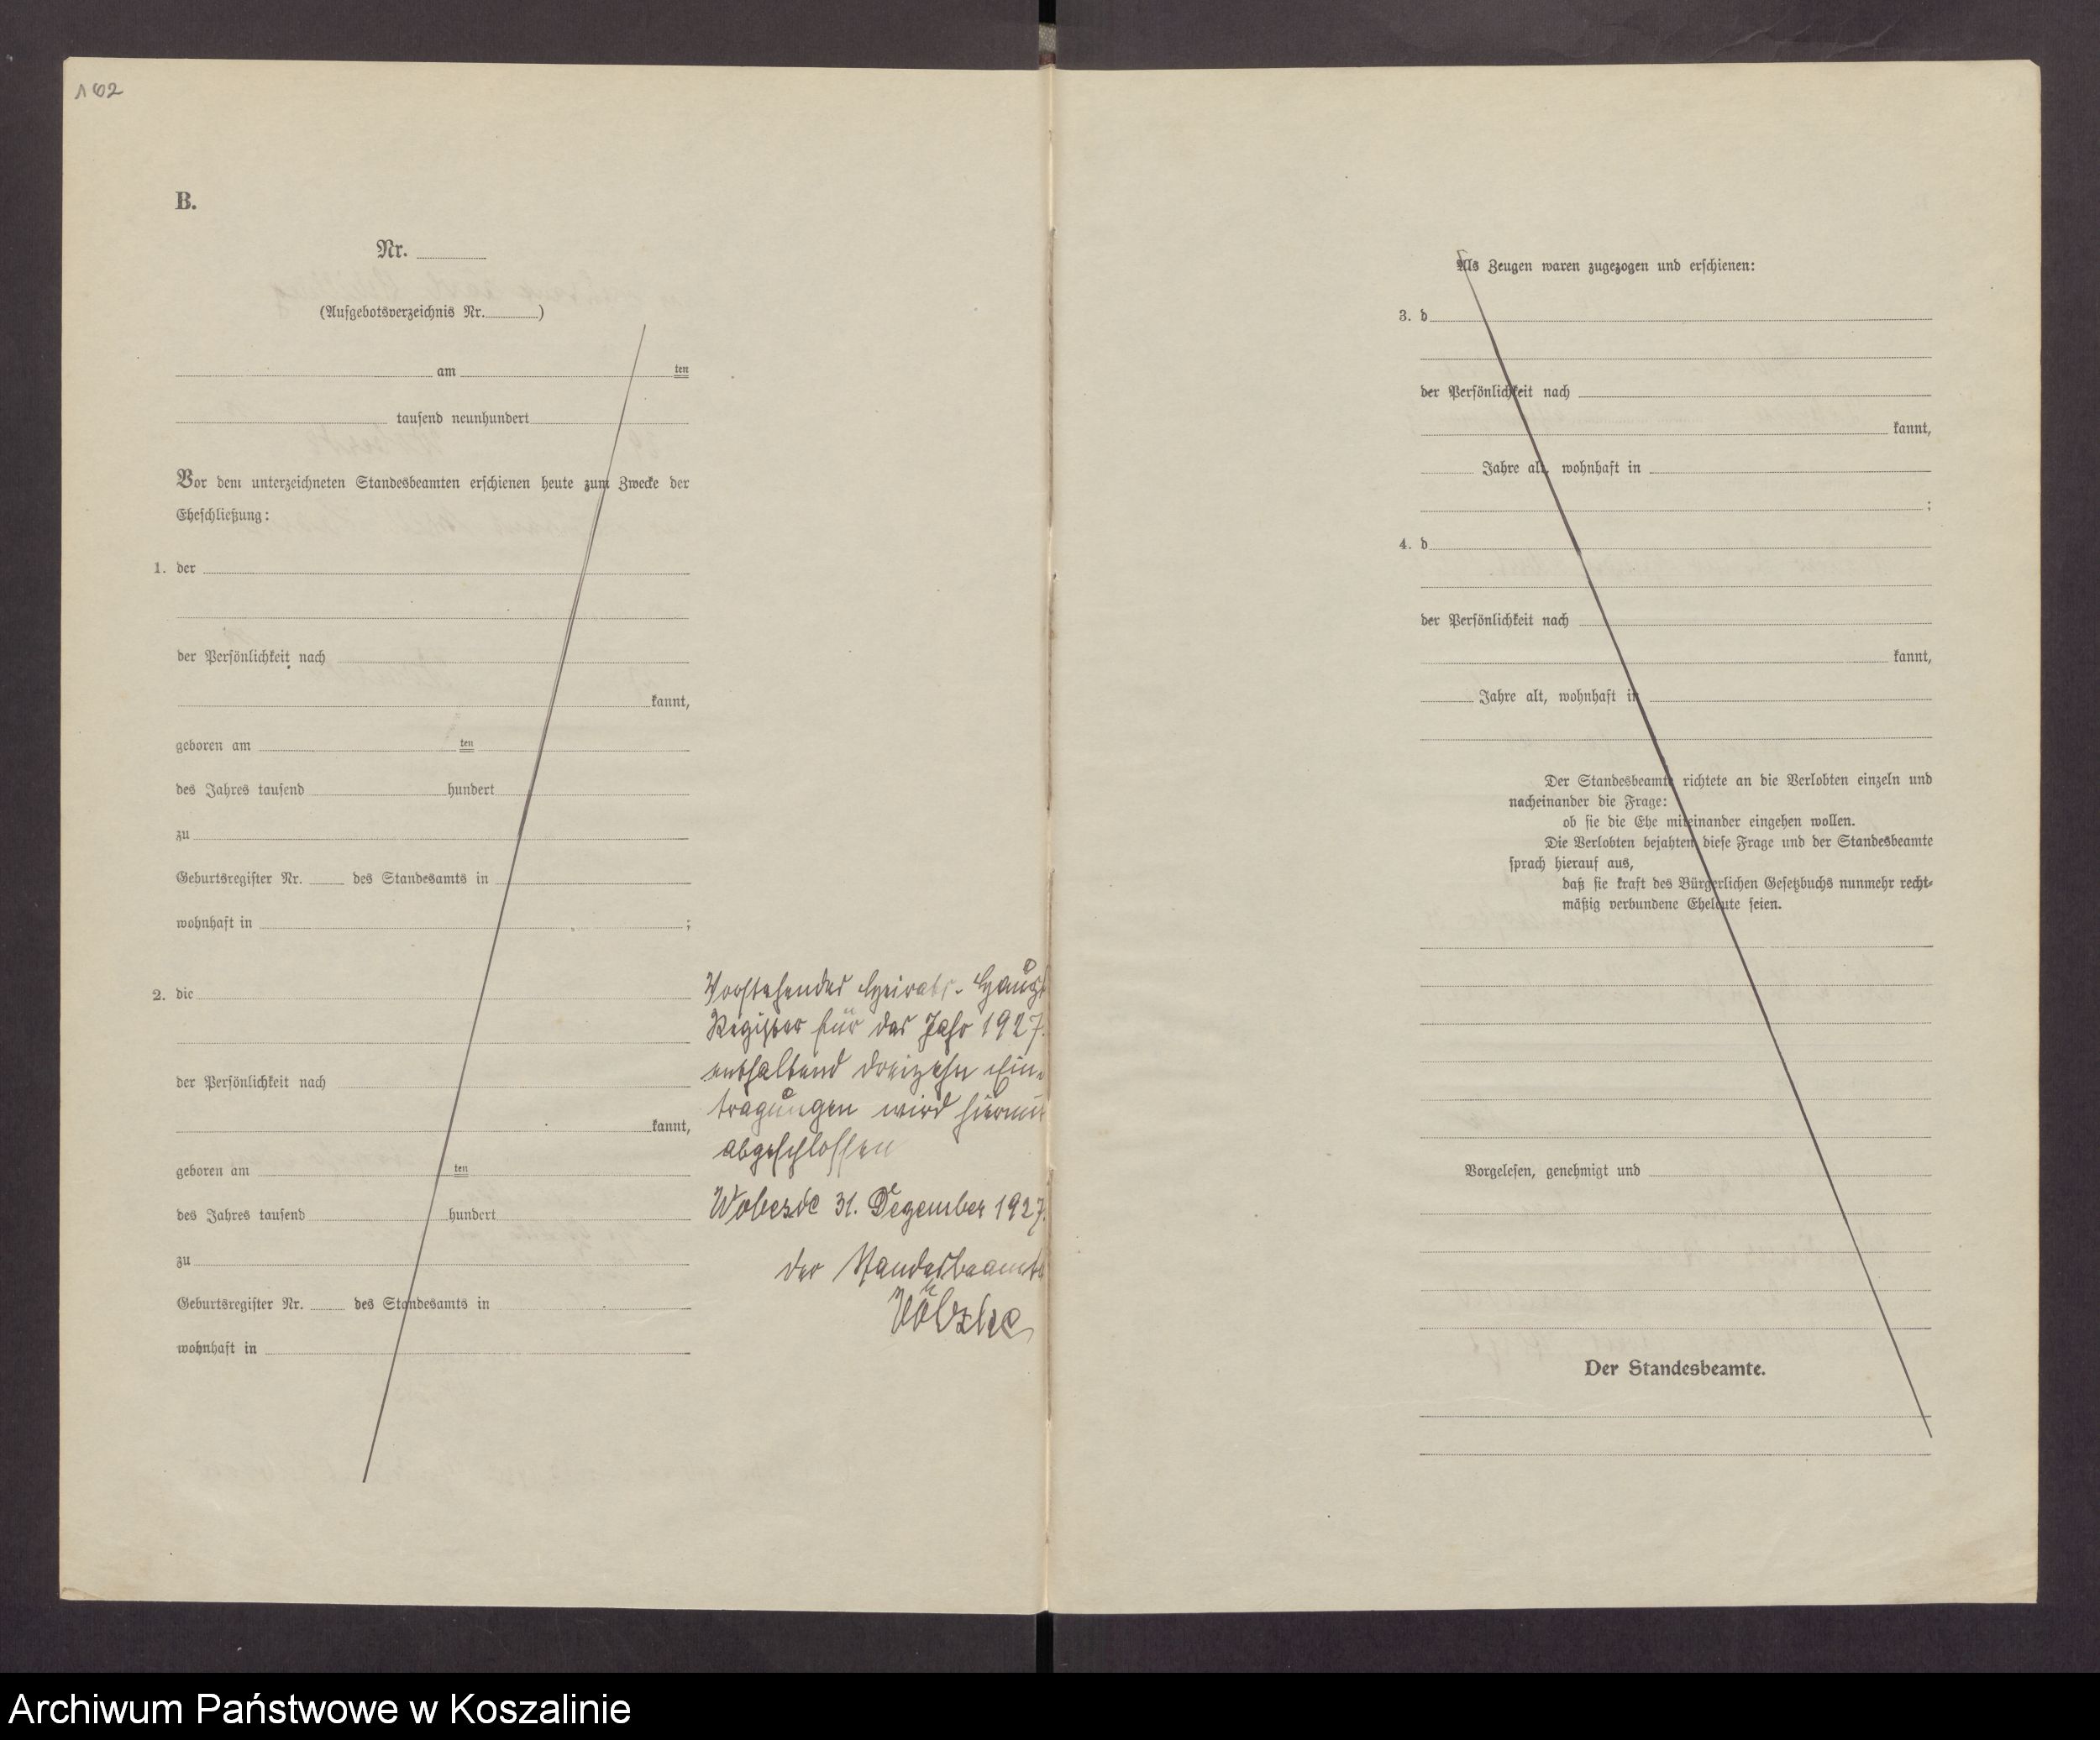 162
B.
Nr.
(Aufgebotsverzeichnis Nr. )
am ten
tausend neunhundert
Vor dem unterzeichneten Standesbeamten erschienen heute zum Zwecke der
Eheschließung:
1. der
der Persönlichkeit nach
kannt,
geboren am ten
des Jahres tausend hundert
zu
Geburtsregister Nr. des Standesamts in
wohnhaft in ;
2. die
der Persönlichkeit nach
kannt,
geboren am ten
des Jahres tausend hundert
zu
Geburtsregister Nr. des Standesamts in
wohnhaft in
Vorstehendes Heirats-Haupt
Register für das Jahr 1927.
enthaltend dreizehn Ein-
tragungen wird hiermit
abgeschlossen
Wobesde 31. Dezember 1927.
der Standesbeamte
Völzke
Als Zeugen waren zugezogen und erschienen:
3. d
der Persönlichkeit nach
kannt,
Jahre alt, wohnhaft in
;
4. d
der Persönlichkeit nach
kannt,
Jahre alt, wohnhaft in
Der Standesbeamte richtete an die Verlobten einzeln und
nacheinander die Frage:
ob sie die Ehe miteinander eingehen wollen.
Die Verlobten bejahten diese Frage und der Standesbeamte
sprach hierauf aus,
daß sie kraft des Bürgerlichen Gesetzbuchs nunmehr recht-
mäßig verbundene Eheleute seien.
Vorgelesen, genehmigt und
Der Standesbeamte.
Archiwum Państwowe w Koszalinie